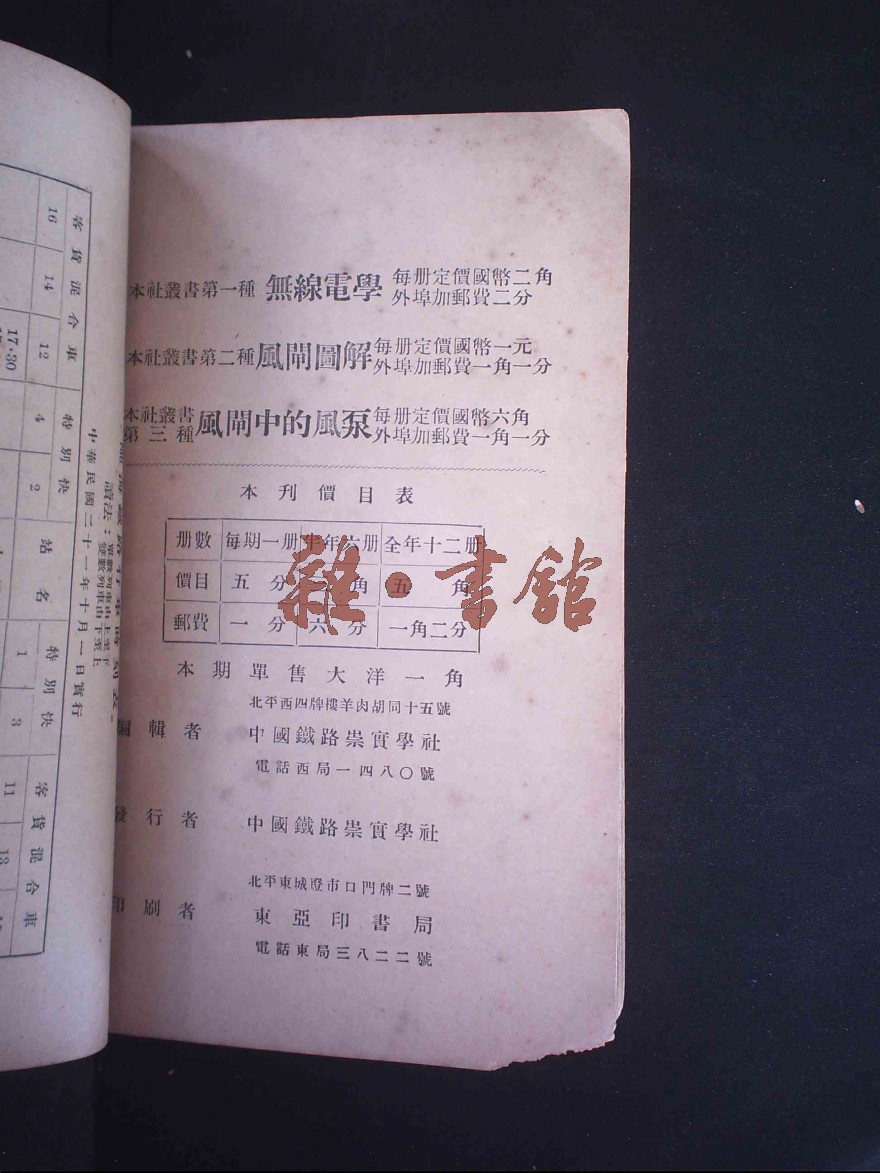 本社叢書第一種 無線電學 每册定價國幣二角
外埠加郵費二分
本社叢書第二種 風閘圖解 每册定價國幣一元
外埠加郵費一角一分
本社叢書第三種 風閘中的風泵 每册定價國幣六角
外埠加郵費一角一分
本刊價目表
册數 每期一册 半年六册 全年十二册
價目 五分 角 五角
郵費 一分 六分 一角二分
本期單售大洋一角
北平西四牌樓羊肉胡同十五號
編輯者 中國鐵路崇實學社
電話西局一四八〇號
發行者 中國鐵路崇實學社
北平東城燈市口門牌二號
印刷者 東亞印書局
電話東局三八二二號
雜·書館
客貨混合車 特別快 站名 特別快 客貨混合車
16 14 12 4 2 1 3 11 13
17.30
讀法：單數列車由上至下
雙數列車由下至上
中華民國二十一年十月一日實行